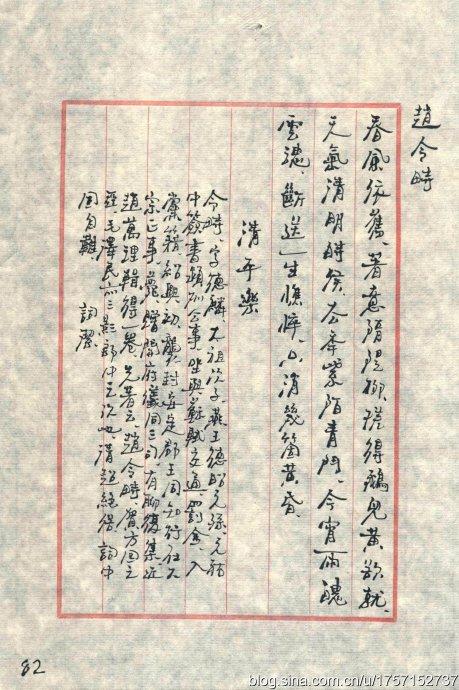 趙令時
春風依舊、著意隋堤柳、搓得鵝兒黃欲就、
天氣清明時候、去年紫陌青門、今宵雨魄
雲魂、斷送一生憔悴、只消幾箇黃昏、
清平樂
令時、字德麟、太祖次子、燕王德昭元孫、元祐
中簽書潁州公事、坐與蘇軾交通、罰金、入
黨籍、紹興初、襲封安定郡王、同知行在大
宗正事、薨、贈開府儀同三司、有聊復集、近
趙萬里輯得一卷、先著云、趙令時、賀方回之
亞、毛澤民三影郎中之次也、清超絕俗、詞中
固自難 詞潔
82
blog.sina.com.cn/u/1757152737